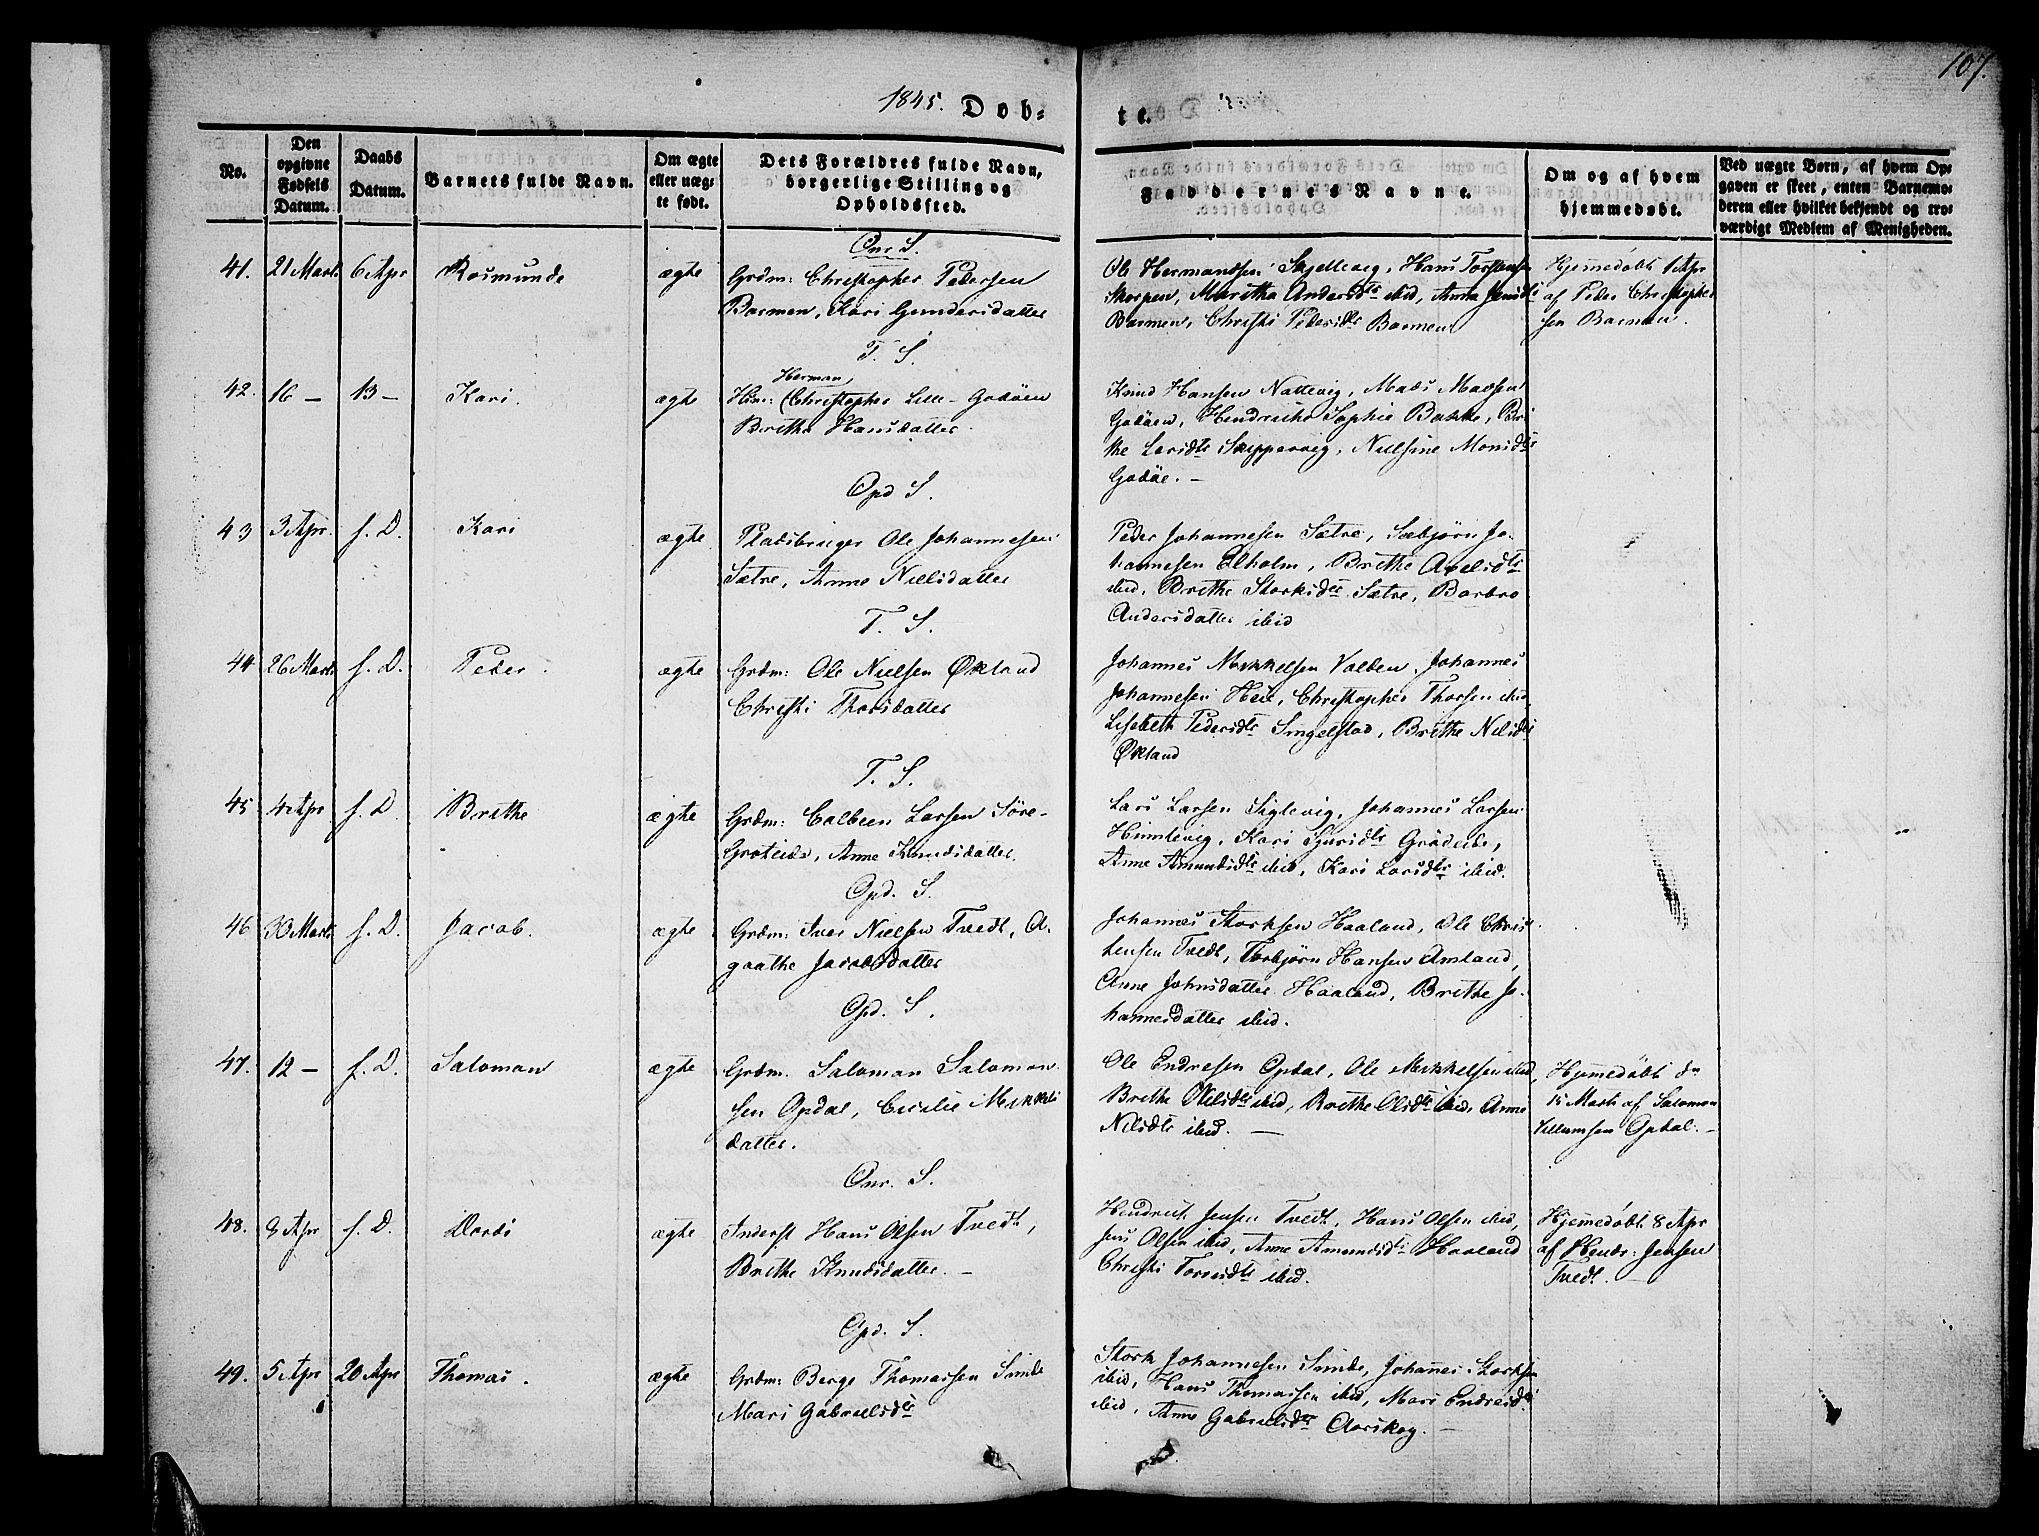 107.
1845. Døb=
te.
No.
Den
opgivne
Fødsels
Datum.
Daabs
Datum.
Barnets fulde Navn.
Om ægte
eller uæg=
te født.
Dets Forældres fulde Navn,
borgerlige Stilling og
Opholdssted.
Faddernes Navne.
Om og af hvem
hjemmedøbt.
Ved uægte Børn, af hvem Op=
gaven er skeet, enten Barnemo=
deren eller hvilket bekjendt og tro=
værdigt Medlem af Menigheden.
Onr. S.
41. 21 Marts 6 Apr Rasmunde ægte
Grdm: Christopher Pedersen
Barmen, Kari Gundersdatter
Ole Hermandsen Skjellevig, Hans Torstensen
Skorpen, Maritha Andersdtr ibid, Anna Jensdtr
Barmen, Christi Pedersdtr Barmen
Hjemedøbt 1 Apr
af Peder Christopher
sen Barmen.
T. S.
42. 16 – 13 – Kari. ægte
Herman
Hsm: Christopher Lille-Godøen
Brithe Hansdatter.
Knud Hansen Nattevig, Mads Madsen
Godøen, Hendrikke Sophie Bakke, Bri
the Larsdtr Skippervig, Nielsine Monsdtr
Godøe. –
Opd S.
43 3 Apr. s. D. Kari ægte
Pladsbruger Ole Johannesen
Sætre, Anne Nielsdatter
Peder Johannesen Sætre, Sæbjørn Jo-
hannesen Elholm, Brithe Axelsdtr
ibid, Brithe Storksdtr Sætre, Barbro
Andersdatter ibid
T. S.
44 26 Marts s. D. Peder. ægte
Grdm: Ole Nielsen Økland
Christi Thorsdatter
Johannes Mikkelsen Valden, Johannes
Johannesen Heie, Christopher Thorsen ibid
Lisebeth Pedersdtr Singelstad, Brithe Nilsdtr
Økland
T. S.
45 4 Apr s. D. Brithe ægte
Grdm: Colbeen Larsen Søre-
Groteide, Anne Knudsdatter.
Lars Larsen Siglevig, Johannes Larsen
Himlevig, Kari Sjursdtr Grødeide,
Anne Amundsdtr ibid, Kari Larsdtr ibid.
Opd. S.
46 30 Marts s. D. Jacob. ægte
Grdm: Iver Nielsen Tvedt, A-
gaathe Jacobsdatter
Johannes Storksen Haaland, Ole Chris
tensen Tvedt, Torbjørn Hansen Amland,
Anne Johnsdatter Haaland, Brithe Jo-
hannesdatter ibid.
Opd. S.
47. 12 – s. D. Salomon ægte
Grdm. Salomon Salomon
sen Opdal, Cicilie Mikkels
datter.
Ole Endresen Opdal, Ole Mikkelsen ibid,
Brithe Nilsdtr ibid, Brithe Olsdtr ibid, Anne
Nilsdtr ibid. –
Hjemedøbt dn
15 Marts af Salomon
Villumsen Opdal. –
Onr. S.
48. 9 Apr s. D. ægte
Inderst Hans Olsen Tvedt,
Brithe Knudsdatter. –
Hendrick Jensen Tvedt, Hans Olsen ibid,
Jens Olsen ibid, Anne Amundsdtr Haaland
Christi Torresdtr ibid.
Hjemedøbt 8 Apr
af Hendr: Jensen
Tvedt. –
Opd. S.
49. 5 Apr 20 Apr Thomas. ægte
Grdm: Berge Thomassen Sunde
Mari Gabrielsdtr
Stork Johannesen Sunde, Johanes Storksen
ibid, Hans Thomassen ibid, Mari Endresdtr
ibid, Anne Gabrielsdtr Aarskog. –